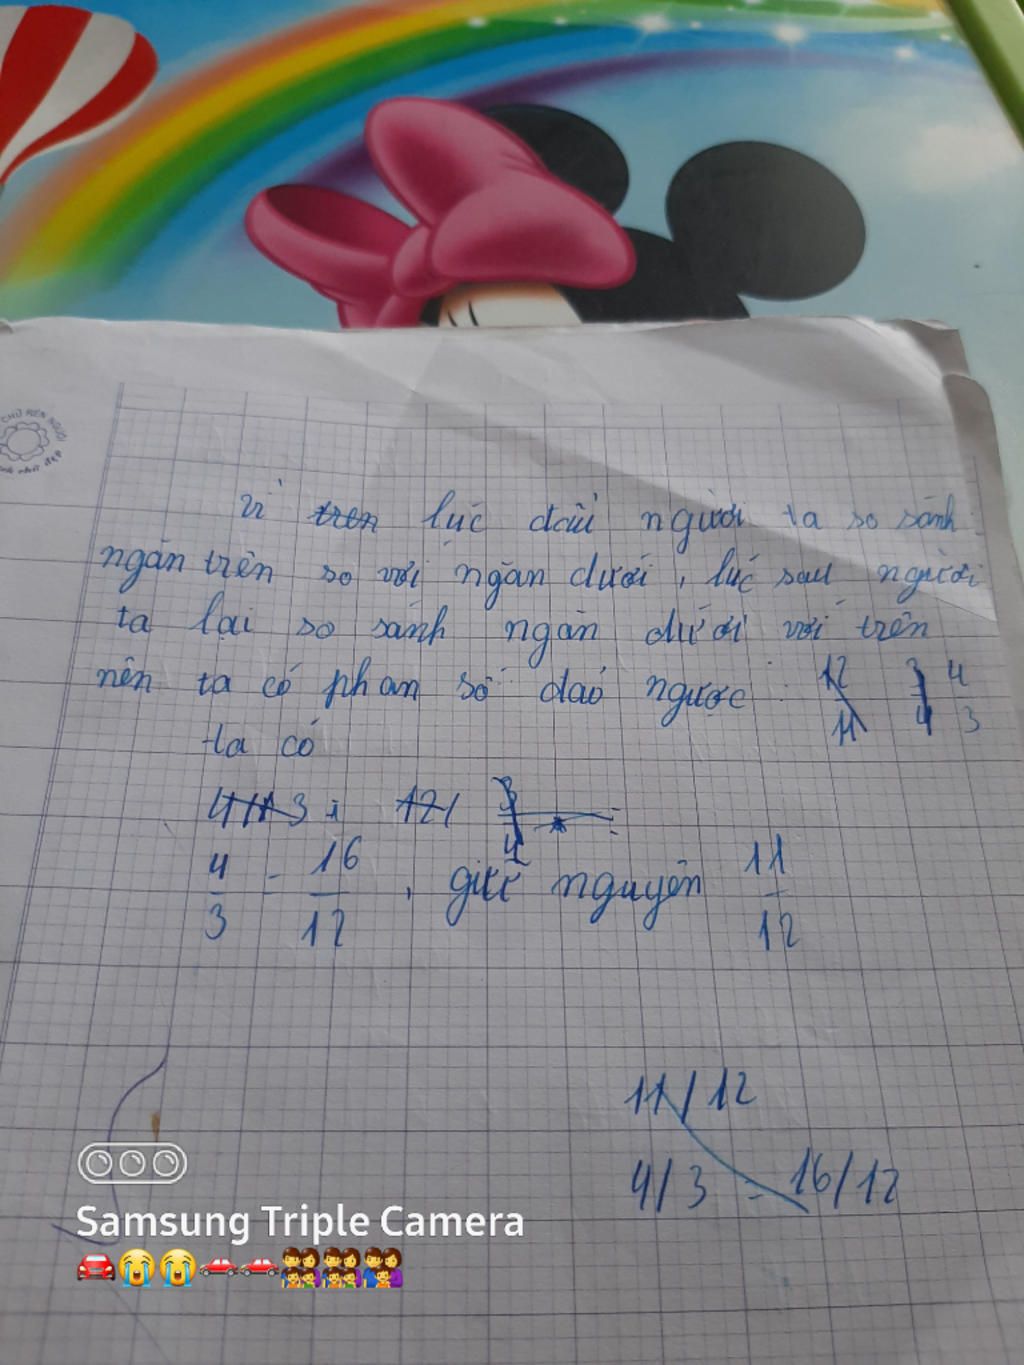 CHỮ NÉN NGƯỜI
Vì tren lúc đầu người ta so sánh
ngăn trên so với ngăn dưới, lúc sau người
ta lại so sánh ngăn dưới với trên
nên ta có phan số đảo ngược : 12/11 3/4 4/3
ta có
3 : 121 3/4
4/3 = 16/12 , giữ nguyên 11/12
11/12
4/3 = 16/12
Samsung Triple Camera
🚗😭😭🏎️🏎️👨‍👩‍👧‍👦👨‍👩‍👧‍👦👨‍👩‍👦